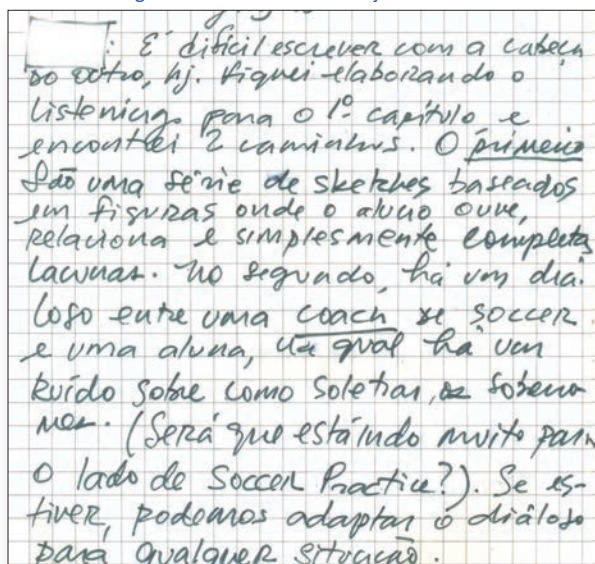 : É difícil escrever com a cabeça
do outro, hj. Fiquei elaborando o
listening para o 1º capítulo e
encontrei 2 caminhos. O primeiro
são uma série de sketches baseados
em figuras onde o aluno ouve,
relaciona e simplesmente completa
lacunas. No segundo, há um diá-
logo entre uma coach de soccer
e uma aluna, na qual há um
ruído sobre como soletrar, os sobreno
mes. (Será que está indo muito para
o lado de Soccer Practice?). Se es-
tiver, podemos adaptar o diálogo
para qualquer situação.